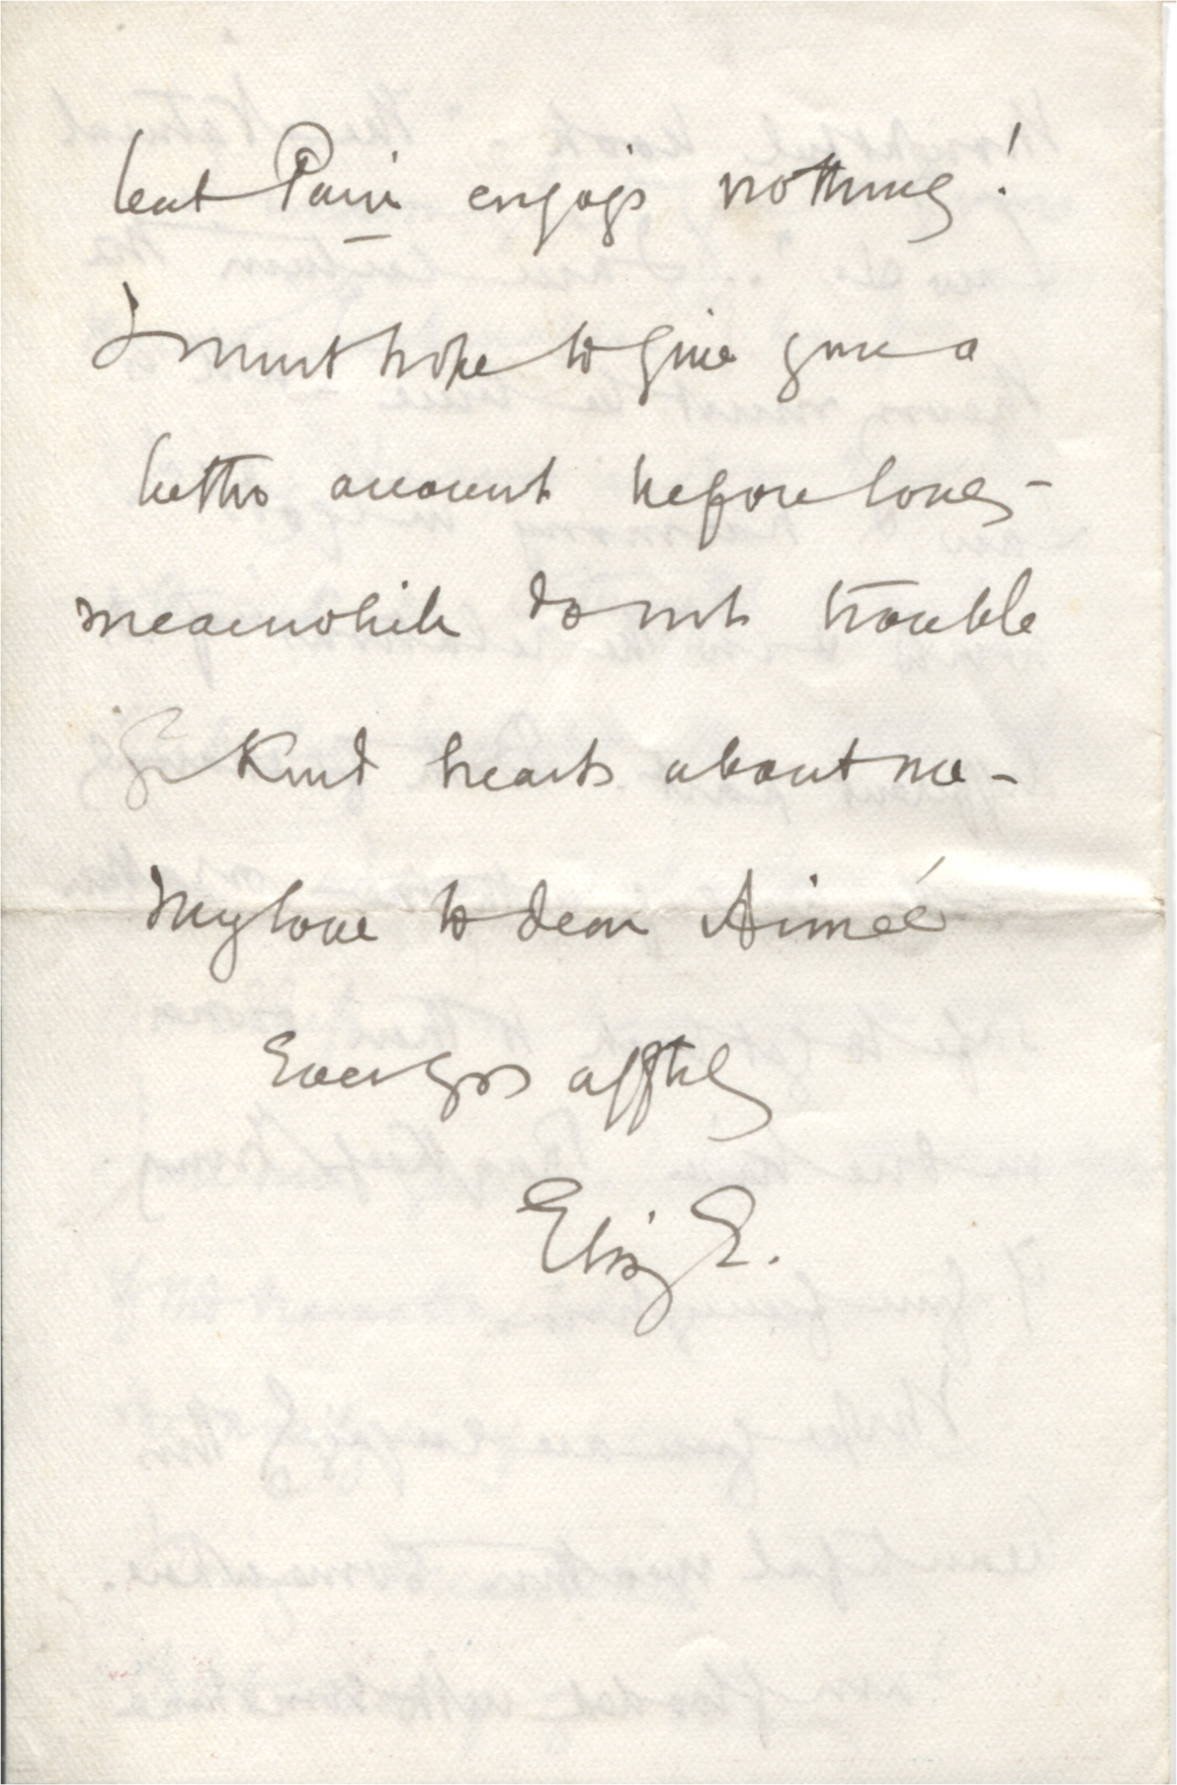 but Pain enjoys nothing!
I must hope to give you a
better account before long -
meanwhile do not trouble
yr Kind hearts about me -
My love to dear Aimée
Ever yrs afftly
Eliz E.